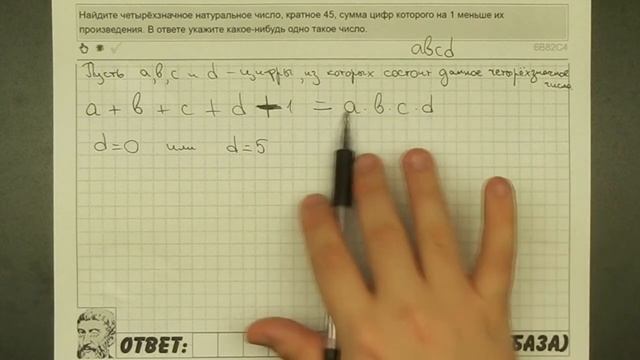 Найдите четырёхзначное натуральное число, кратное 45, сумма цифр которого на 1 меньше их
произведения. В ответе укажите какое-нибудь одно такое число.
6B82C4
abcd
Пусть a, b, c и d - цифры, из которых состоит данное четырёхзначное
число
a + b + c + d + 1 = a · b · c · d
d = 0 или d = 5
ОТВЕТ:
БАЗА)